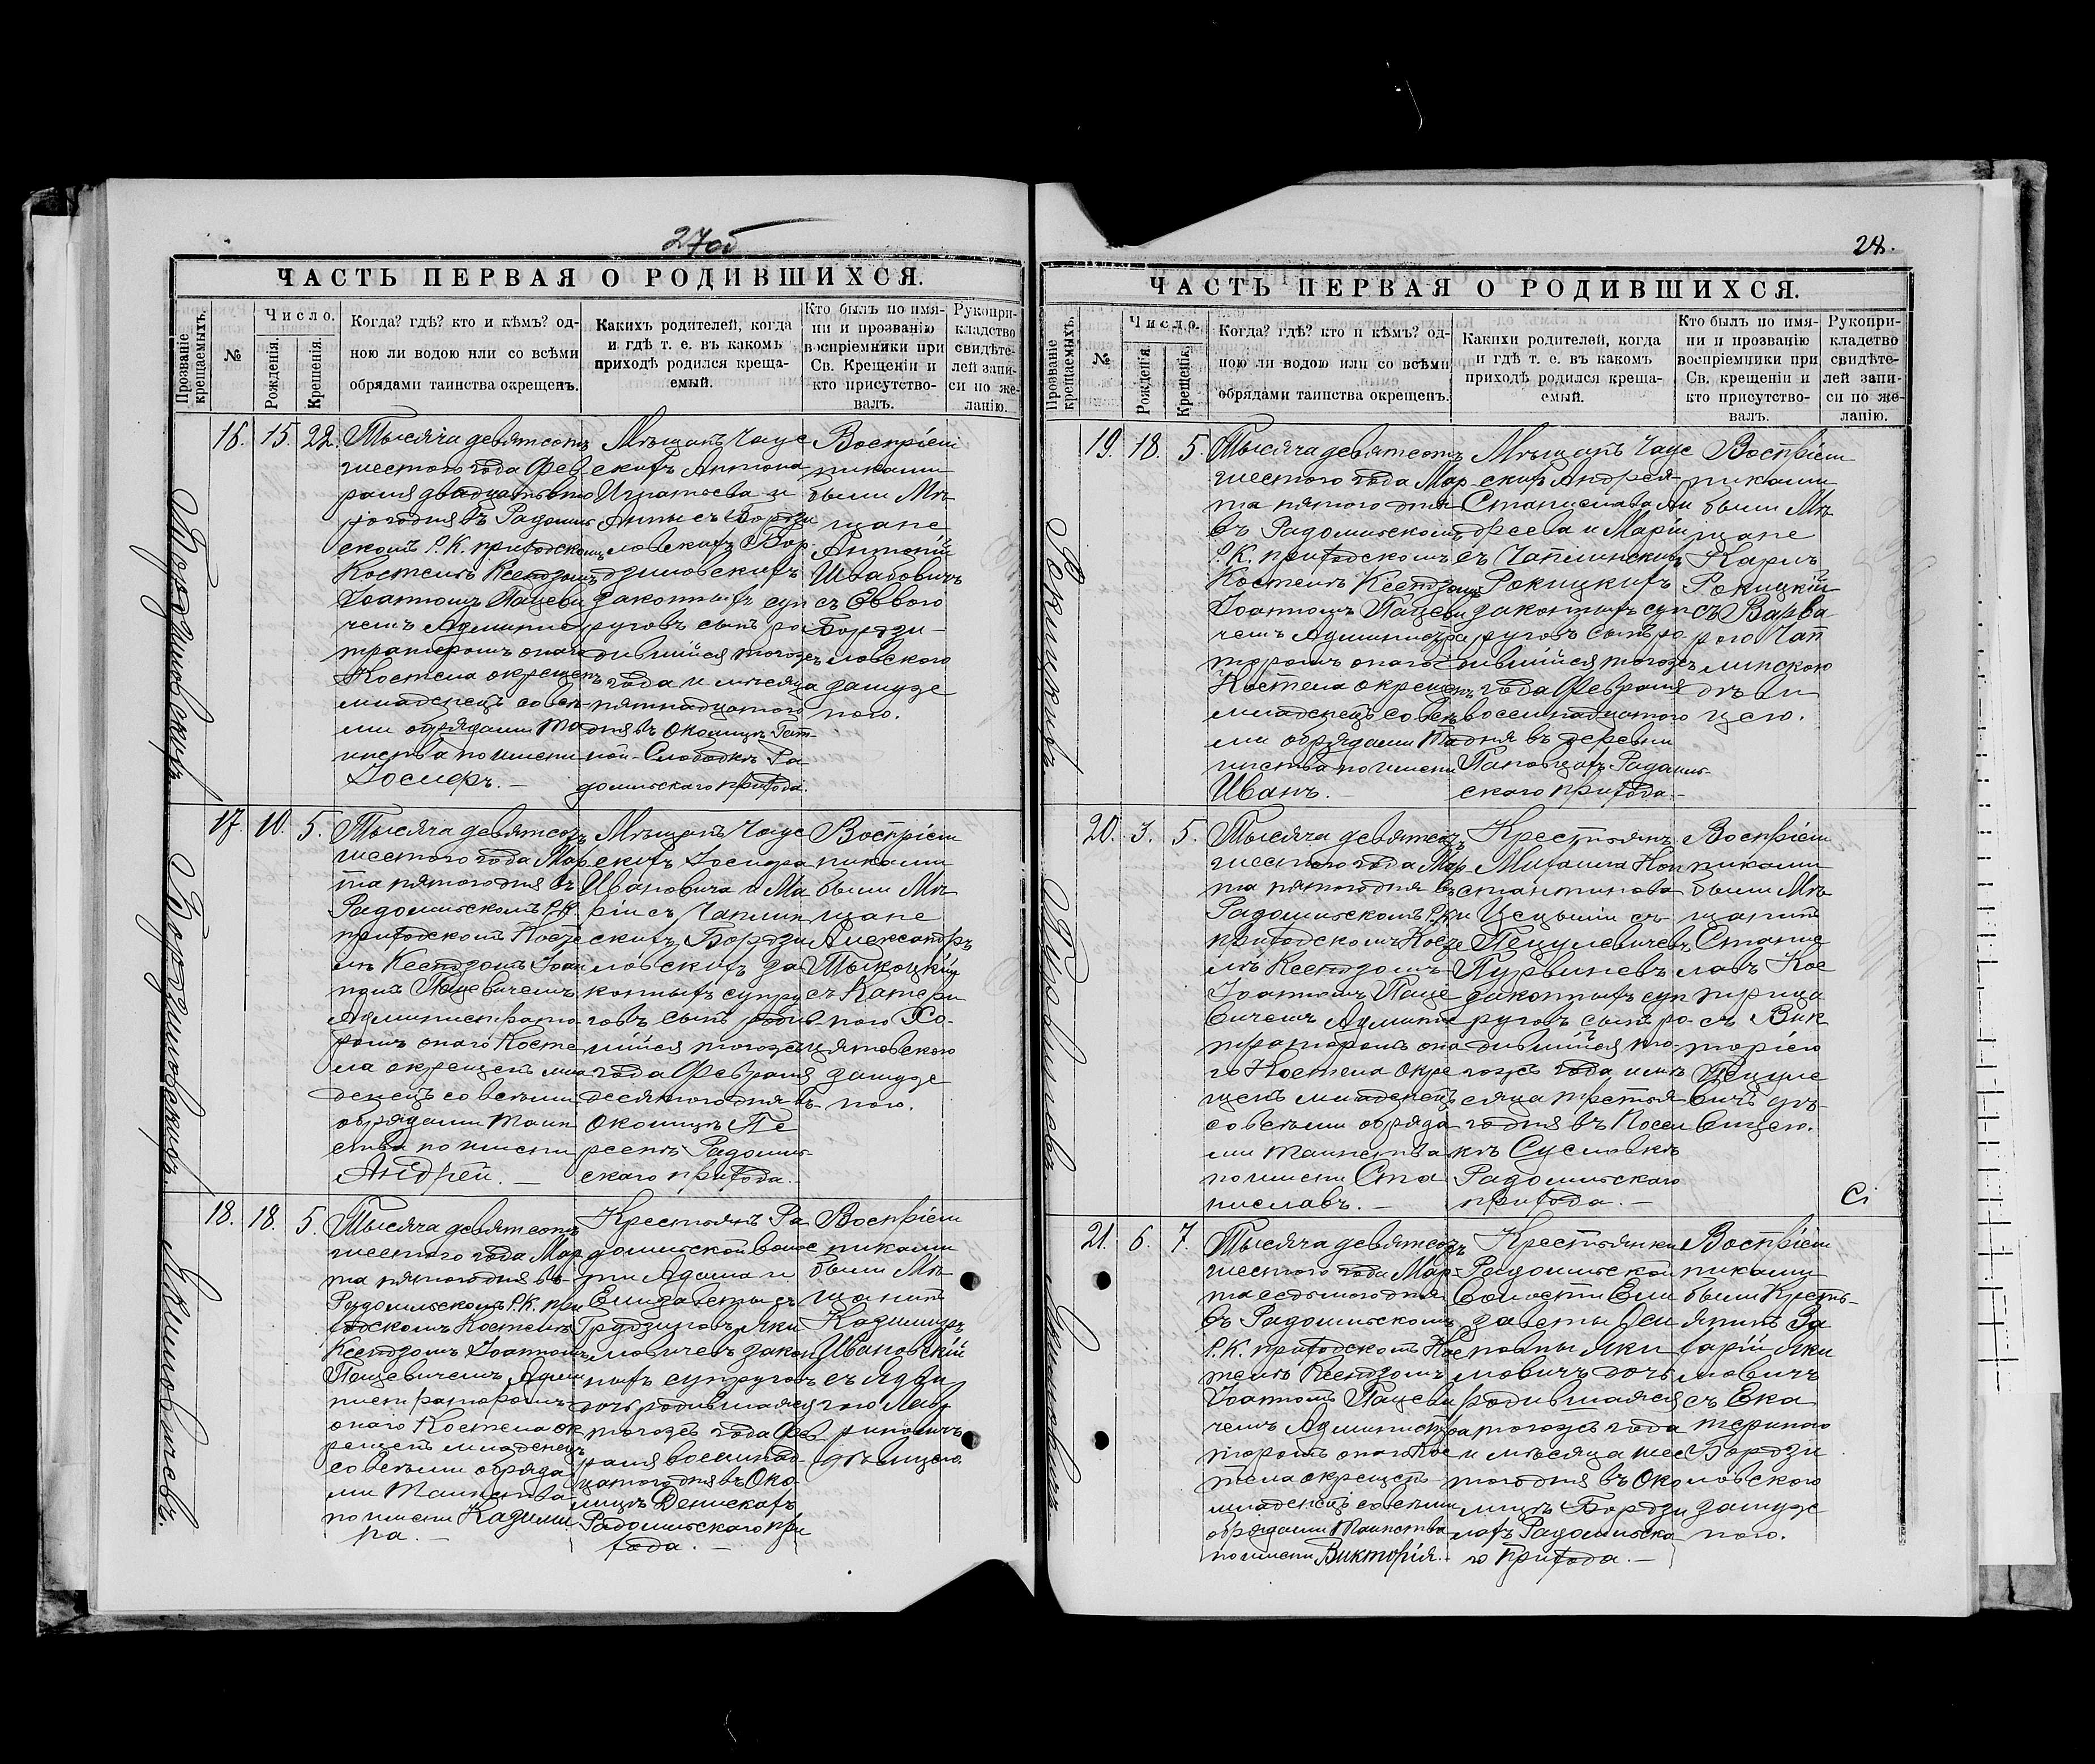 27об
ЧАСТЬ ПЕРВАЯ О РОДИВШИХСЯ.
Прозваніе крещаемыхъ.
№
Число.
Рожденія.
Крещенія.
Когда? гдѣ? кто и кѣмъ? од-
ною ли водою или со всѣми
обрядами таинства окрещенъ.
Какихъ родителей, когда
и гдѣ т. е. въ какомъ
приходѣ родился креща-
емый.
Кто былъ по имя-
ни и прозванію
воспріемники при
Св. Крещеніи и
кто присутство-
валъ.
Рукопри-
кладство
свидѣте-
лей запи-
си по же-
ланію.
Бордзиловскихъ
16. 15. 22.
Тысяча девятсотъ
шестого года Фев
раля двадцать вто
рогодня въ Радомль
скомъ Р.К. приходскомъ
Костелѣ Ксендзомъ
Іоанномъ Пацеви
чемъ Админис
траторомъ онаго
Костела окрещенъ
младенецъ со всѣ
ми обрядами Та
инства по имени
Іосифъ. —
Мѣщанъ Чаус
скихъ Антона
Игнатьева и
Анны съ Бордзи
ловскихъ Бор
дзиловскихъ
законныхъ суп
руговъ сынъ ро
дившійся тогожъ
года и мѣсяца
пятнадцатого
дня въ Околицѣ Гат
ной-Слободкѣ Ра
домльскаго прихода.
Воспріем
никами
были Мѣ
щане
Антоній
Швабовичъ
съ Еввою
Бордзи-
ловскою
замуже
ною.
Бордзиловскихъ
17. 10. 5.
Тысяча девятсотъ
шестого года Мар
та пятогодня въ
Радомльскомъ Р.К.
приходскомъ Косте
лѣ Ксендзомъ Іоан
номъ Пацевичемъ
Администрато
ромъ онаго Косте
ла окрещенъ мла
денецъ со всѣми
обрядами Таин
ства по имени
Андрей. —
Мѣщанъ Чаус
скихъ Іосифа
Ивановича и Ма
ріи съ Чаплин
скихъ Бордзи
ловскихъ за
конныхъ супру
говъ сынъ родив
шійся тогожъ
года Февраля
десятогодня въ
Околицѣ Пе
рсекъ Радомль
скаго прихода. —
Воспріем
никами
были Мѣ
щане
Александръ
Тыкоцкій
съ Катери
ною Хо-
цяновскою
замуже
ною.
Якимовичевъ.
18. 18. 5.
Тысяча девятсотъ
шестого года Мар
та пятогодня въ
Радомльскомъ Р.К. при
ходскомъ Костелѣ
Ксендзомъ Іоанномъ
Пацевичемъ Адми
нистраторомъ
онаго Костела ок
рещенъ младенецъ
со всѣми обряда
ми Таинства
по имени Казими
ра. —
Крестьянъ Ра
домльской волос
ти Адама и
Елизаветы съ
Грудзиновъ Яки
мовичевъ закон
ныхъ супруговъ
дочь родившаяся
тогожъ года Фев
раля восемнад
цатогодня въ Око-
лицѣ Денискахъ
Радомльскаго при
хода. —
Воспріем
никами
были Мѣ
щанинъ
Казимиръ
Ивановскій
съ Ядви
гою Лав
риновичъ
дѣвицею.
28.
ЧАСТЬ ПЕРВАЯ О РОДИВШИХСЯ.
Прозваніе крещаемыхъ.
№
Число.
Рожденія.
Крещенія.
Когда? гдѣ? кто и кѣмъ? од-
ною ли водою или со всѣми
обрядами таинства окрещенъ.
Какихи родителей, когда
и гдѣ т. е. въ какомъ
приходѣ родился креща-
емый.
Кто былъ по имя-
ни и прозванію
воспріемники при
Св. крещеніи и
кто присутство-
валъ.
Рукопри-
кладство
свидѣте-
лей запи-
си по же-
ланію.
Рокицкихъ
19. 18. 5.
Тысяча девятсотъ
шестого года Мар
та пятого дня
въ Радомльскомъ
Р.К. приходскомъ
Костелѣ Ксендзомъ
Іоанномъ Пацеви
чемъ Администра
торомъ онаго
Костела окрещенъ
младенецъ со всѣ
ми обрядами Та
инства по имени
Иванъ. —
Мѣщанъ Чаус
скихъ Андрея-
Станислава Ан
дреева и Маріи
съ Чаплинскихъ
Рокицкихъ
законныхъ суп
руговъ сынъ ро
дившійся тогожъ
года Февраля
восемнадцатого
дня въ деревни
Пановцахъ Радомль-
скаго прихода. —
Воспріем
никами
были Мѣ
щане
Карлъ
Рокицкій
съ Варва
рою Чап
линскою
дѣви
цею.
Пурвиневъ
20. 3. 5.
Тысяча девятсотъ
шестого года Мар
та пятогодня въ
Радомльскомъ Р.К.
приходскомъ Косте
лѣ Ксендзомъ
Іоанномъ Паце
вичемъ Админис
траторомъ она
го Костела окре
щенъ младенецъ
со всѣми обряда
ми Таинства
по имени Ста
ниславъ. —
Крестьянъ
Михаила Кон
стантинова
и Цецыліи съ
Пецулевичевъ
Пурвиневъ
законныхъ суп
руговъ сынъ ро-
дившійся то-
гожъ года и мѣ
сяца третья
годня въ Посел
кѣ Сусловкѣ
Радомльскаго
прихода. —
Воспріем
никами
были Мѣ
щанинъ
Станис
лавъ Кос
трица
съ Вик
торіею
Пецуле
вичъ дѣ-
вицею.
Якимовичъ
21. 6. 7.
Тысяча девятсотъ
шестого года Мар-
та седьмогодня
въ Радомльскомъ
Р.К. приходскомъ Кос
телѣ Ксендзомъ
Іоанномъ Пацеви
чемъ Администра
торомъ онаго Кос
тела окрещенъ
младенецъ со всѣми
обрядами Таинства
по имени Викторія. —
Крестьянки
Радомльской
волости Ели
заветы Оси
повны Яки
мовичъ дочь
родившаяся
тогожъ года
и мѣсяца шес
тогодня въ Око
лицѣ Бордзи
лахъ Радомльска
го прихода. —
Воспріем
никами
были Кресть-
янинъ За
харій Яки
мовичъ
съ Ека
териною
Бордзи
ловскою
замуже
ною.